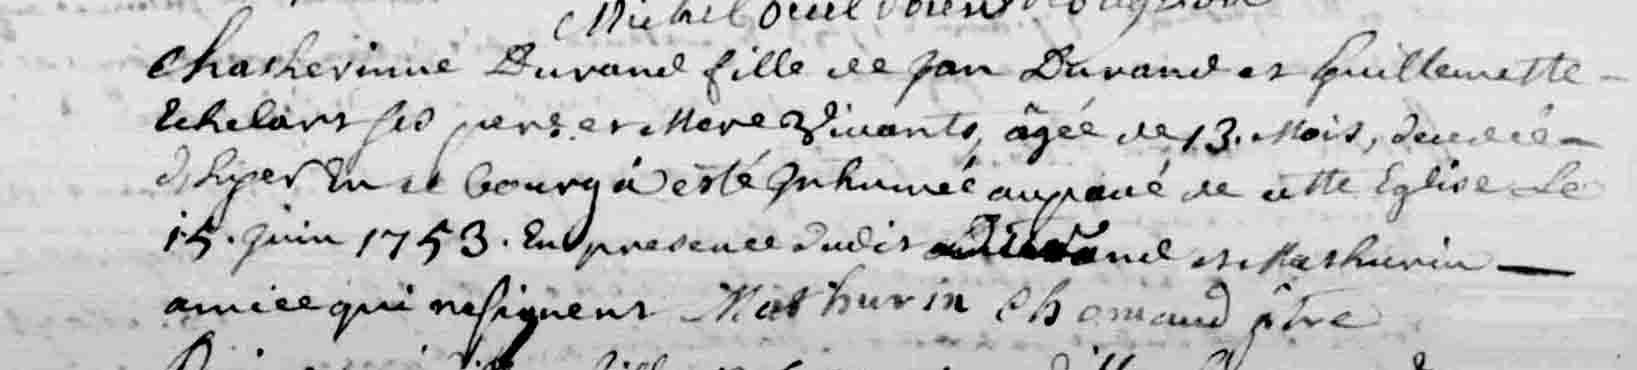 Michel
Chatherinne Durand fille de Jan Durand et Guillemette
Echelart ses pere et Mere Vivants, âgée de 13. Mois, deceдée
d'hyer En ce bourg a esté Inhumée au pavé de cette Eglise Le
15. juin 1753. En presence dudit Durand et Mathurin
amice qui ne signent Mathurin Chomaud ptre
fille